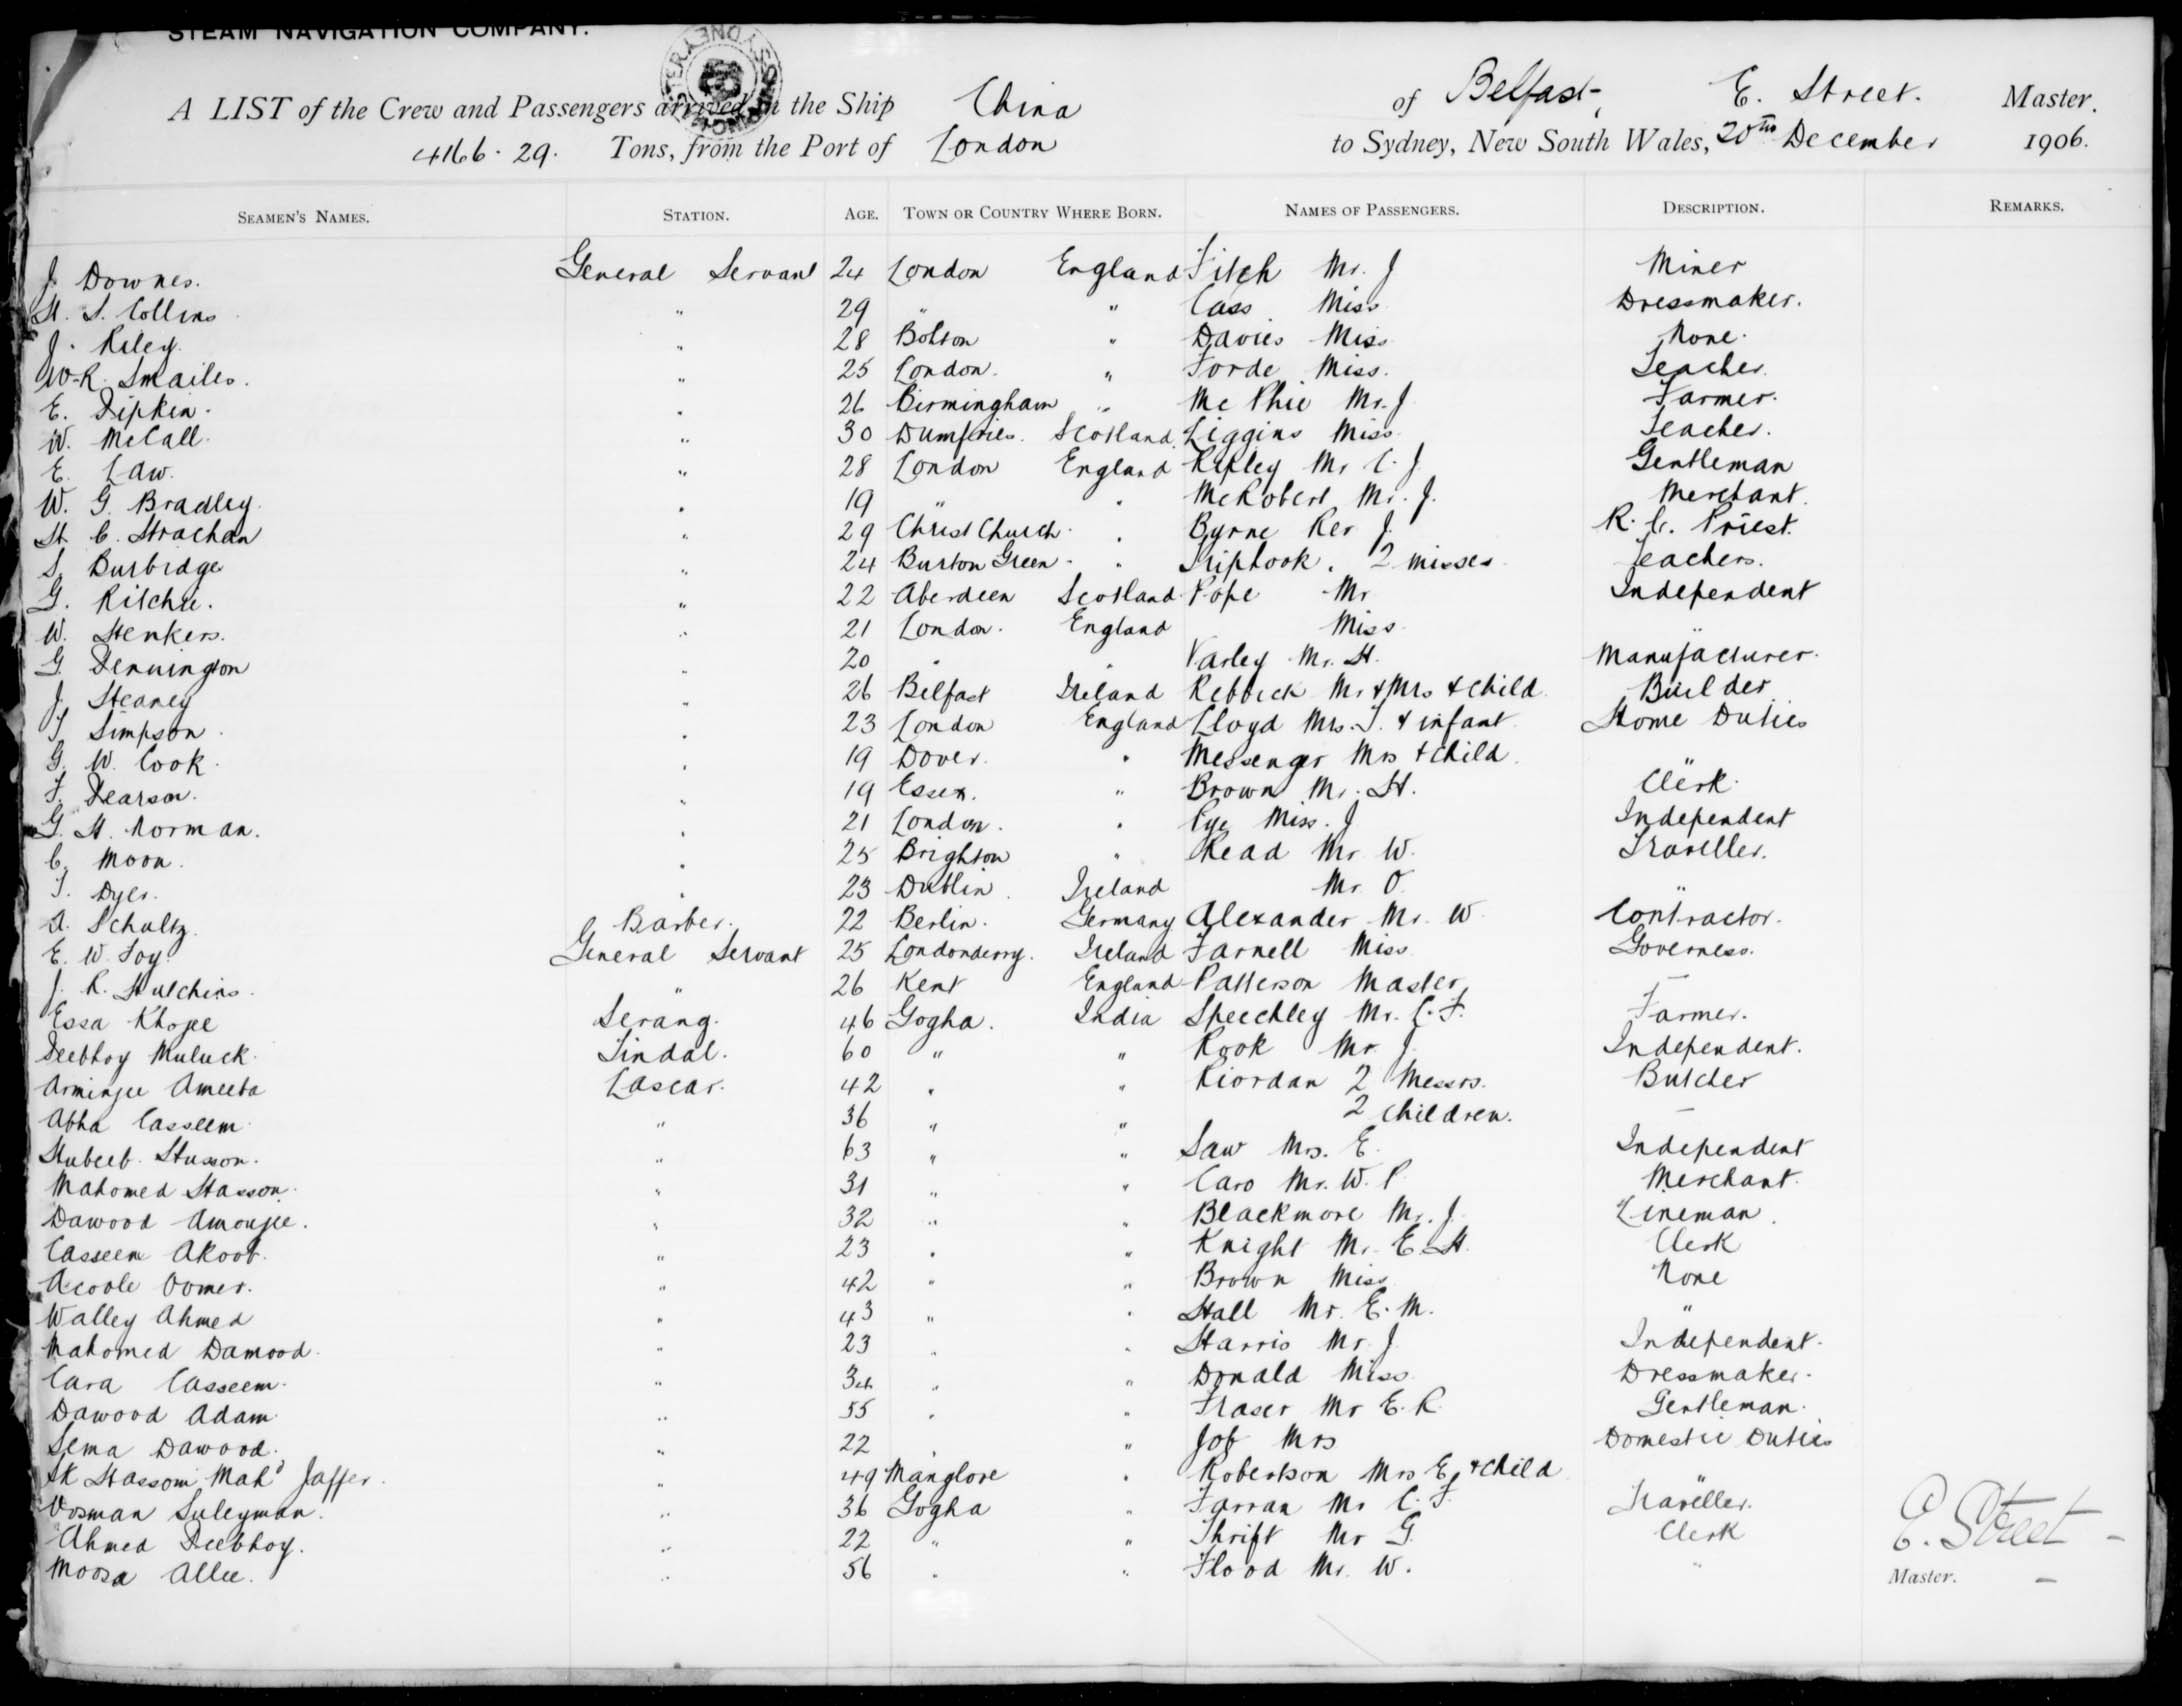 STEAM NAVIGATION COMPANY.
A LIST of the Crew and Passengers arrived in the Ship China of Belfast, E. Street. Master.
4166.29. Tons, from the Port of London to Sydney, New South Wales, 20th December 1906.
SEAMEN'S NAMES. STATION. AGE. TOWN OR COUNTRY WHERE BORN. NAMES OF PASSENGERS. DESCRIPTION. REMARKS.
J. Downes. General Servant 24 London England Fitch Mr. J Miner
H. S. Collins " 29 " " Cass Miss Dressmaker.
J. Riley. " 28 Bolton " Davies Miss None.
W. R. Smailes. " 25 London. " Forde Miss. Teacher.
E. Pipkin. " 26 Birmingham " McPhie Mr. J Farmer.
W. McCall. " 30 Dumfries. Scotland. Liggins Miss Teacher.
E. Law. " 28 London England Ripley Mr C. J. Gentleman
W. G. Bradley. " 19 " " McRobert Mr. J. Merchant.
H. C. Strachan " 29 Christ Church. " Byrne Rev J. R. C. Priest.
S. Burbidge " 24 Burton Green. " Triphook. 2 misses Teachers.
G. Ritchie. " 22 Aberdeen Scotland Pope Mr Independent
W. Henkers. " 21 London. England Miss "
G. Pennington " 20 " " Varley Mr. H. Manufacturer.
J. Heaney " 26 Belfast Ireland Rebbeck Mr & Mrs & child. Builder
T. Simpson. " 23 London England Lloyd Mrs. T. & infant Home Duties
G. W. Cook. " 19 Dover. " Messenger Mrs & child. "
F. Pearson. " 19 Essex. " Brown Mr. H. Clerk.
G. H. Norman. " 21 London. " Pye Miss. J Independent
C. Moon. " 25 Brighton " Read Mr W. Traveller.
T. Dyer. " 23 Dublin. Ireland Mr O. "
A. Schultz. Barber. 22 Berlin. Germany Alexander Mr. W Contractor.
E. W. Foy. General Servant 25 Londonderry. Ireland Farnell Miss Governess.
J. R. Hutchins. " 26 Kent England Patterson Master, —
Essa Khojee Serang. 46 Gogha. India Speechley Mr. C. F. Farmer.
Peebhoy Muluck. Tindal. 60 " " Rook Mr J. Independent.
Arminjee Ameeba Lascar. 42 " " Riordan 2 Messrs. Butcher
Abha Casseem " 36 " " 2 children. —
Hubeeb Husson. " 63 " " Saw Mrs. E. Independent
Mahomed Hasson. " 31 " " Caro Mr. W. P. Merchant.
Dawood Amoujee. " 32 " " Blackmore Mr. J. Lineman.
Casseem Akoob. " 23 " " Knight Mr. E. H. Clerk
Acoole Oomer. " 42 " " Brown Miss None
Walley Ahmed " 43 " " Hall Mr. E. M. "
Mahomed Damood. " 23 " " Harris Mr. J Independent.
Cara Casseem. " 34 " " Donald Miss Dressmaker.
Dawood Adam. " 55 " " Fraser Mr E. R. Gentleman.
Sema Dawood. " 22 " " Job Mrs Domestic Duties
Sk Hassom Mahd Jaffer. " 49 Manglore " Robertson Mrs E. & child "
Oosman Suleyman. " 36 Gogha " Farran Mr C. F. Traveller.
Ahmed Peebhoy. " 22 " " Thrift Mr G. Clerk
Moosa Allee. " 56 " " Flood Mr. W. "
E. Street
Master.